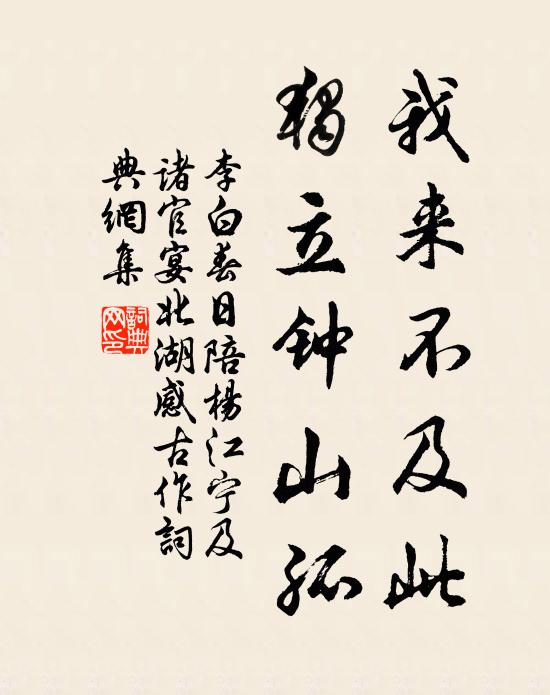 我来不及此
獨立钟山孤
李白春日陪楊江宁及
诸官宴北湖感古作詞
典網集
詞典网印